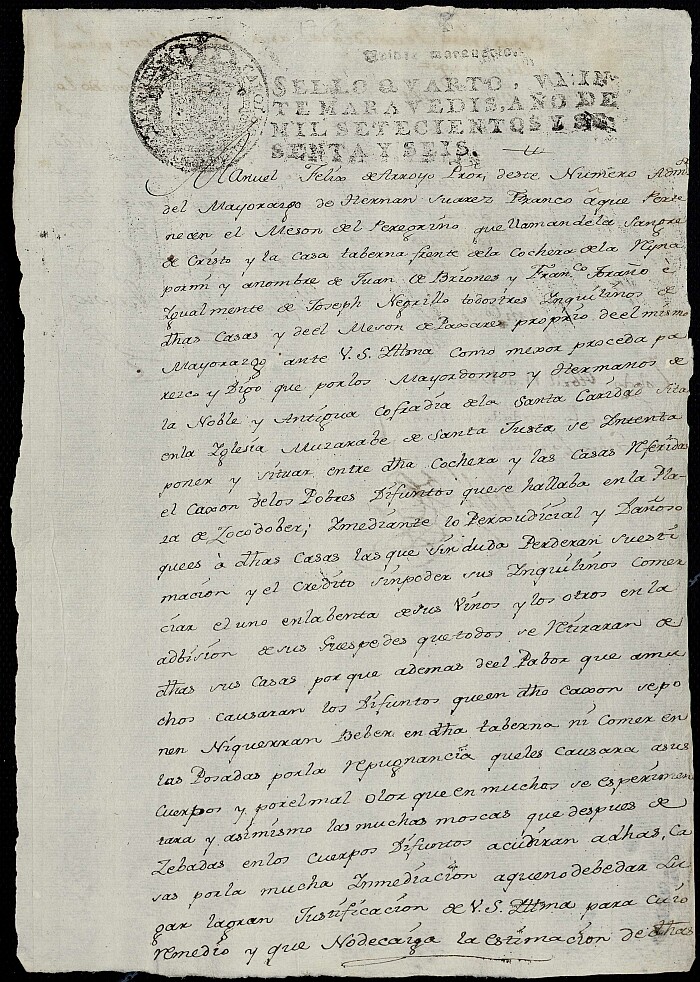 Veinte maravedis.
SELLO QVARTO, VEIN-
TE MARAVEDIS, AÑO DE
MIL SETECIENTOS Y SE-
SENTA Y SEIS.
Manuel Felix de Arroyo Pror, deste Numero Admr
del Mayorazgo de Hernan Suarez Franco à que Perte
necen el Meson del Peregrino que llaman de la Sangre
de Cristo y la Casa taberna frente de la Cochera de la Reyna
por mi y a nombre de Juan de Briones y Franco Braño è
Igualmente de Joseph Negrillo todos tres Inquilinos de
dhas Casas y de el Meson de Paxares proprio de el mismo
Mayorazgo ante V. S. Yltma Como mexor proceda pa
rezco y Digo que por los Mayordomos y Hermanos de
la Noble y Antigua Cofradia de la Santa Caridad Sita
en la Iglesia Muzarabe de Santa Justa se Intenta
poner y situar entre dha Cochera y las Casas Referidas
el Caxon de los Pobres Difuntos que se hallaba en la Pla-
za de Zocodober; Ymediante lo Perxudicial y Dañoso
que es à dhas Casas las que sin duda Perderan su esti
macion y el Credito sin poder sus Inquilinos Comer
ciar el uno en la benta de sus Vinos y los otros en la
adbision de sus Guespedes que todos se Retiraran de
dhas sus Casas por que ademas de el Pabor que a mu
chos causaran los Difuntos que en dho Caxon se po
nen Ni querran Beber en dha taberna ni Comer en
las Posadas por la repugnancia que les causara a sus
Cuerpos y por el mal Olor que en muchos se esperimen
tara y asimismo las muchas moscas que despues de
Zebadas en los Cuerpos Difuntos acudiran a dhas Ca
sas por la mucha Inmediacion a que no debe dar Lu
gar la gran Justificacion de V. S. Yltma para Cuio
remedio y que No decaiga la estimacion de dhas